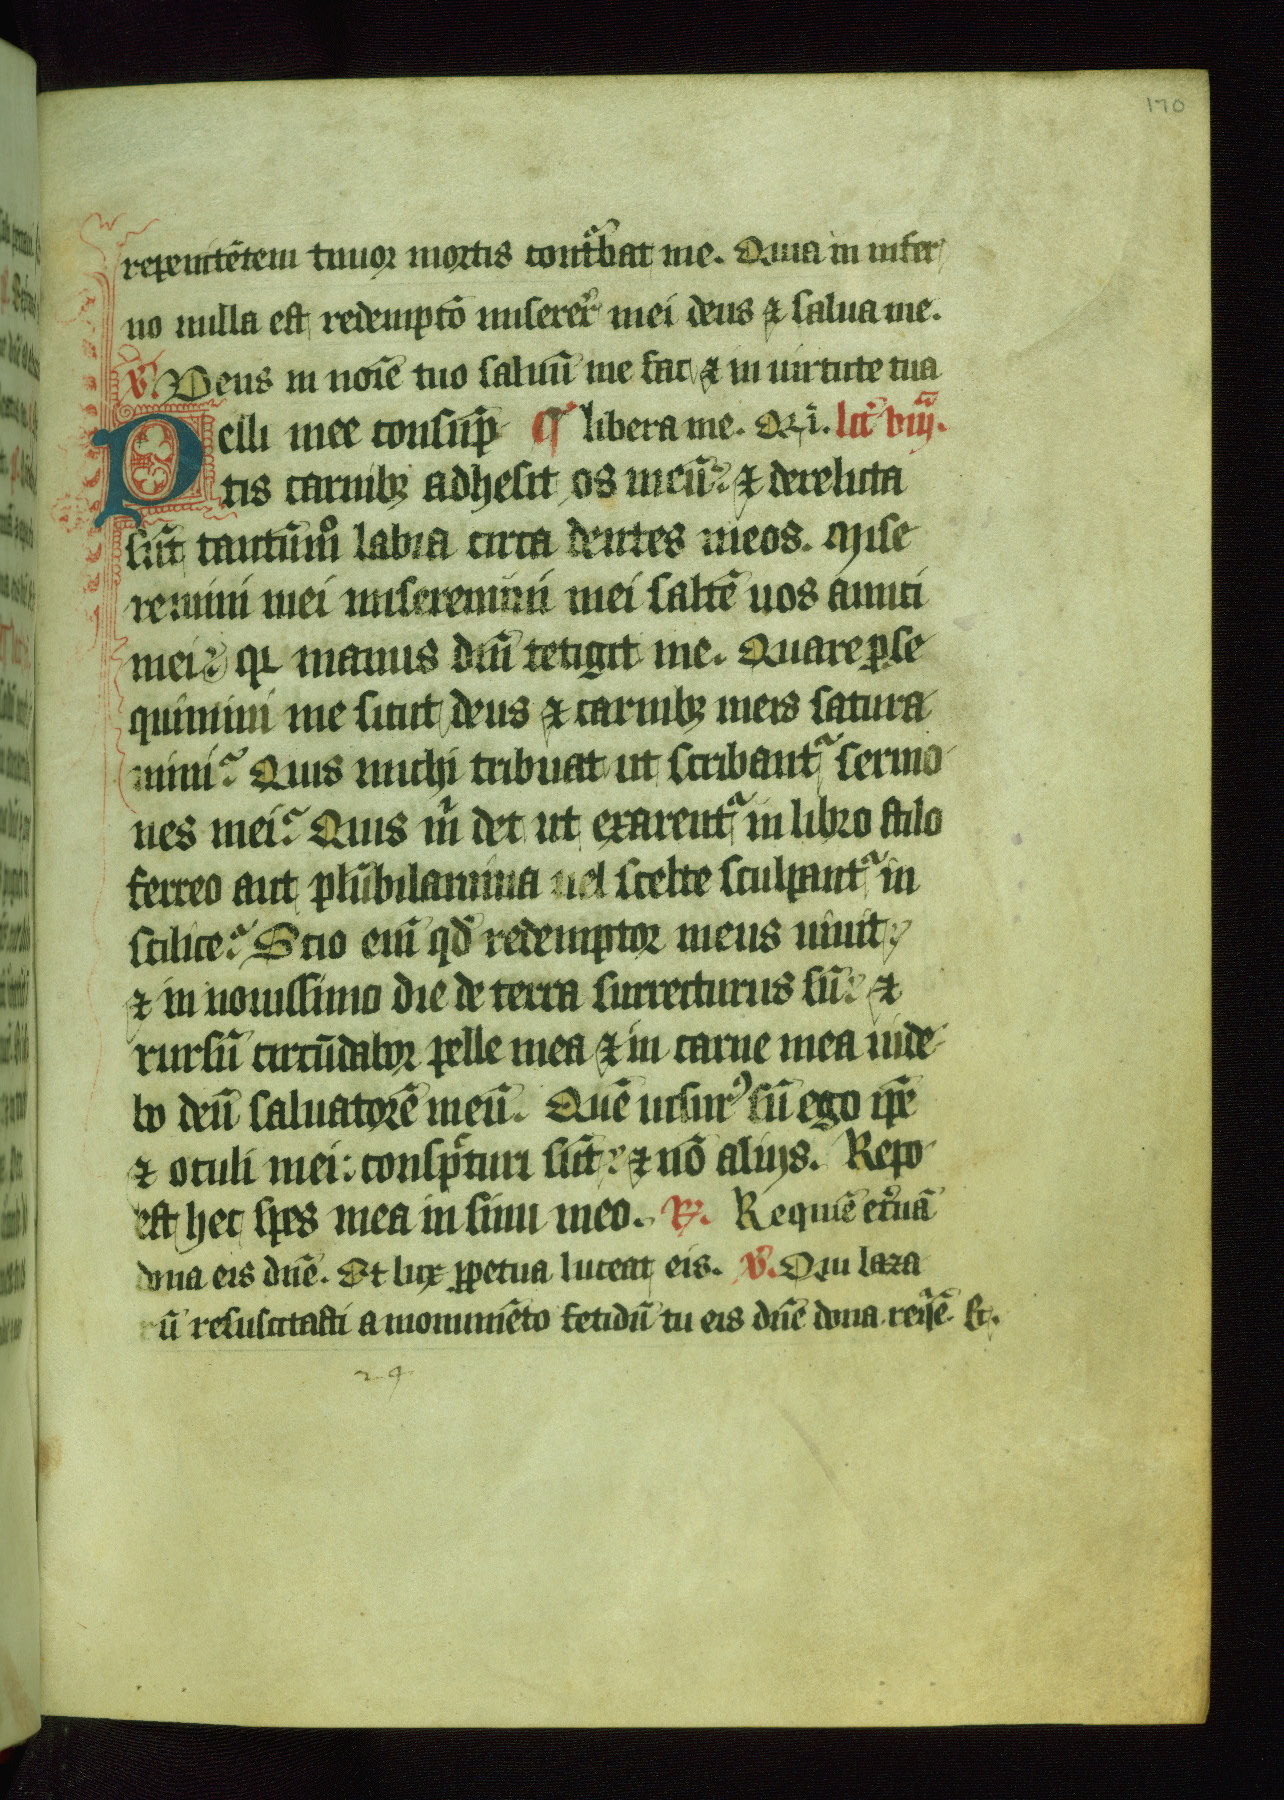 170
repenitētem timor mortis contᵃbat me. Quia in infer
no nulla est redempcō miserer̄ mei deus ⁊ salua me.
v̄. Deus in noīe tuo saluū me fac ⁊ in uirtute tua
Pelli mee consūp̄ ¶ libera me. Q̄ i. lc̄ viij.
tis carnibꝫ adhesit os meū: ⁊ derelicta
sūt tantūmͦ labia circa dentes meos. Mise
remini mei miseremini mei saltē uos amici
mei: qꝛ manus dn̄i tetigit me. Quare ꝑse
quimini me sicut deus ⁊ carnibꝫ meis satura
mini? Quis michi tribuat ut scribant᷑ sermo
nes mei? Quis m̄ det ut exarent᷑ in libro stilo
ferreo aut plūbi lamina uel scelte sculpant᷑ in
scilice? Scio enī qd̄ redemptor meus uiuit:
⁊ in nouissimo die de terra surrecturus sū: ⁊
rursū circūdabor pelle mea ⁊ in carne mea uide
bo deū saluatorē meū. Quē uisurꝰ sū ego ip̄e
⁊ oculi mei: conspc̄turi sūt: ⁊ nō alius. Repo
est hec spes mea in sinu meo. ℟. Requiē et̄nā
dona eis dn̄e. Et lux ꝑpetua luceat eis. v̄. Qui laza
rū resuscitasti a monumēto fetidū tu eis dn̄e dona reqⁱē ⁊c.
29